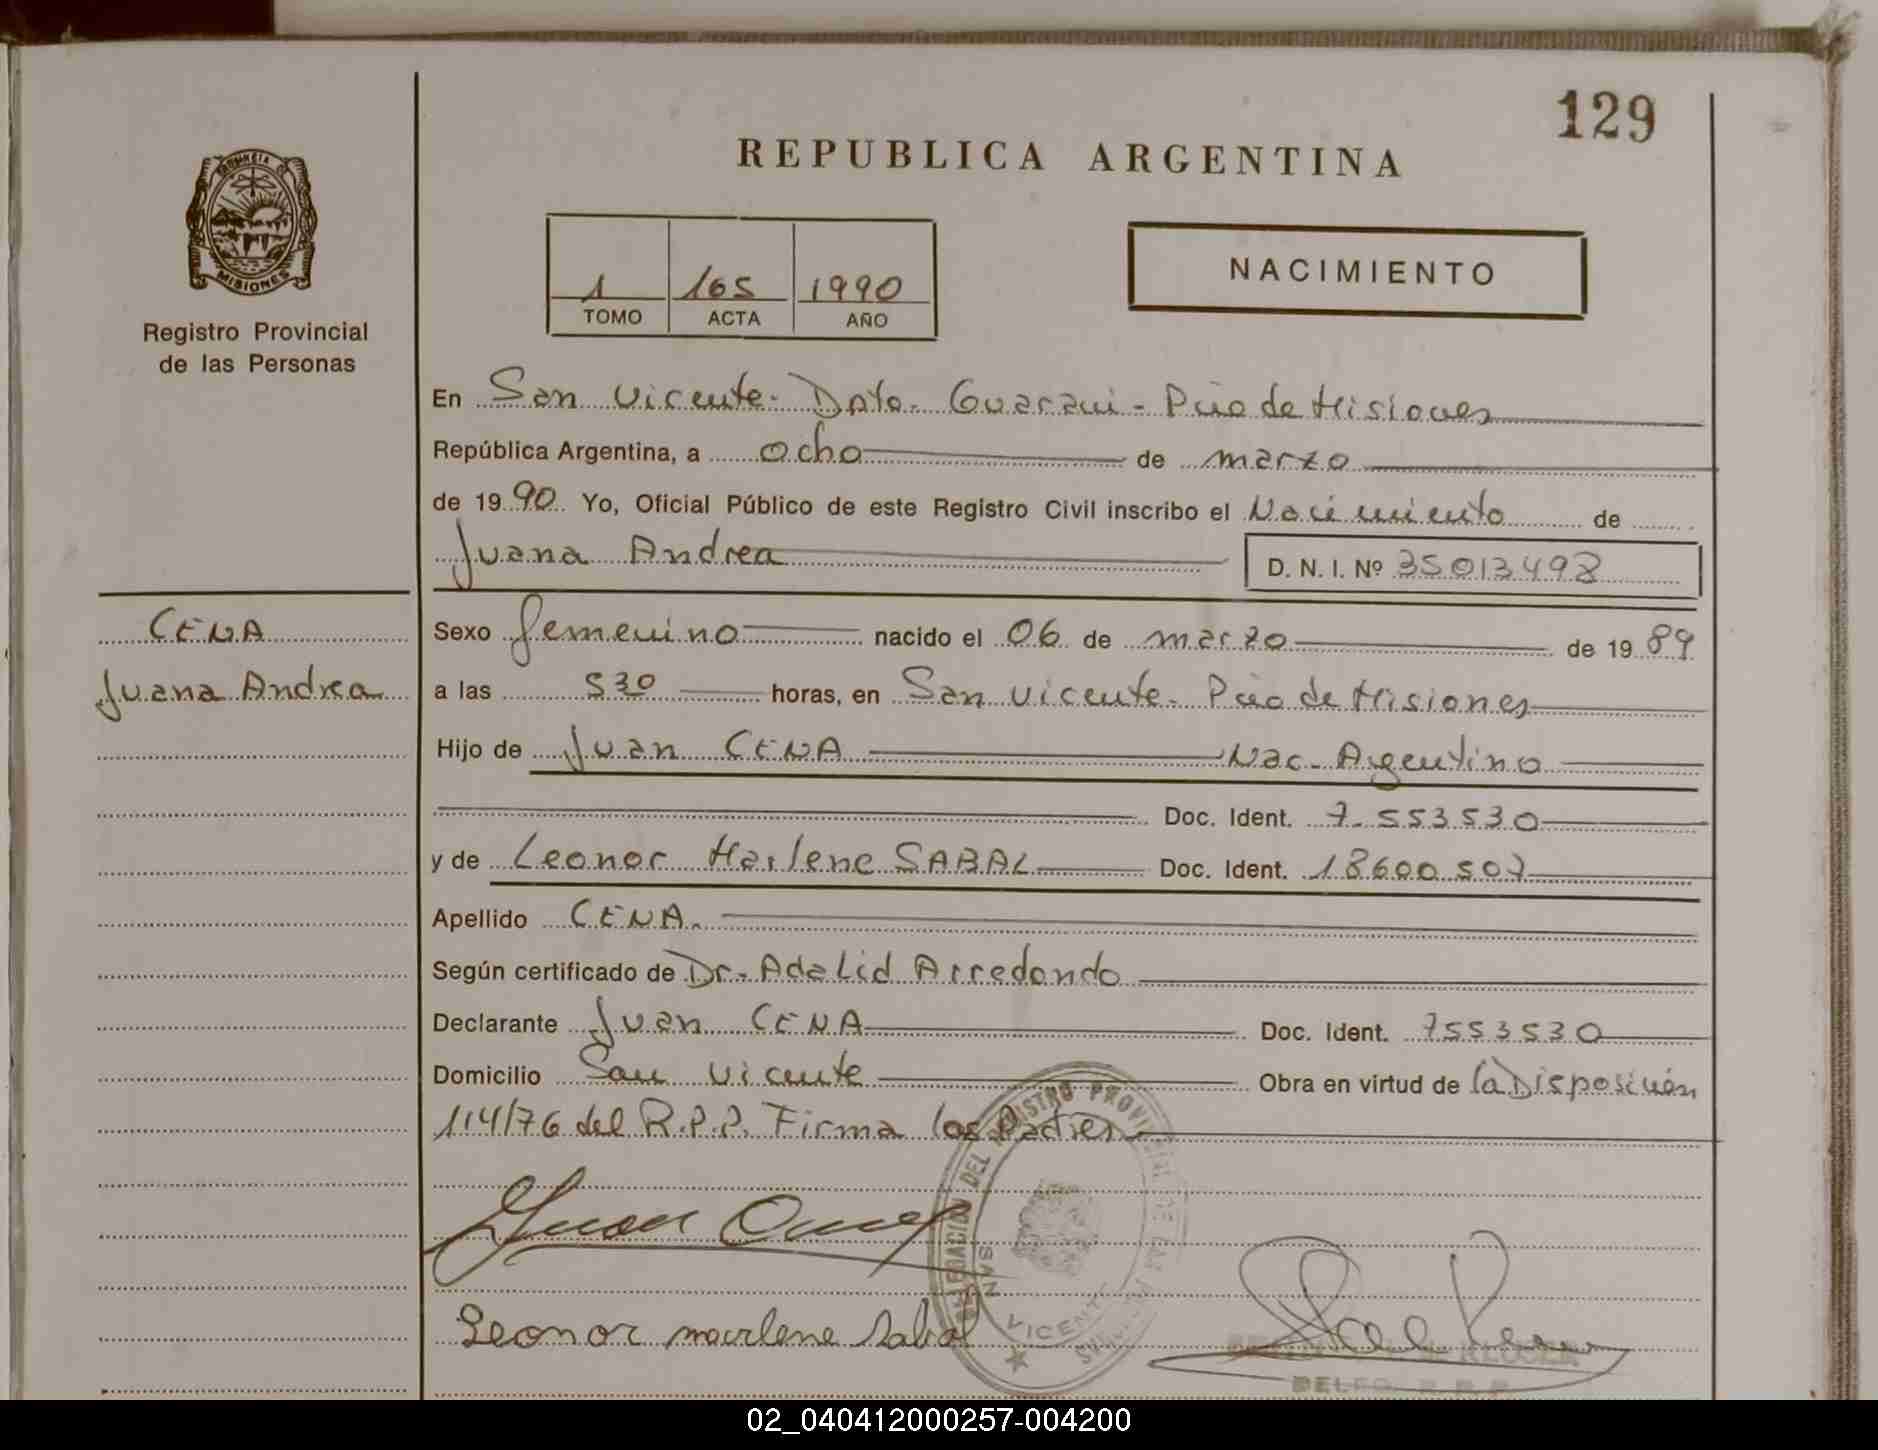 129
REPUBLICA ARGENTINA
PROVINCIA
MISIONES
Registro Provincial
de las Personas
1 165 1990
TOMO ACTA AÑO
NACIMIENTO
En San Vicente. Dpto. Guarani - Pcia de Misiones
República Argentina, a ocho de marzo
de 1990 Yo, Oficial Público de este Registro Civil inscribo el Nacimiento de
Juana Andrea D. N. I. Nº 35013498
CENA
Juana Andrea
Sexo femenino nacido el 06 de marzo de 1989
a las 530 horas, en San Vicente. Pcia de Misiones
Hijo de Juan CENA Nac. Argentino
Doc. Ident. 7.553530
y de Leonor Marlene SABAL Doc. Ident. 18600507
Apellido CENA.
Según certificado de Dr. Adalid Arredondo
Declarante Juan CENA Doc. Ident. 7553530
Domicilio San Vicente Obra en virtud de la Disposición
114/76 del R.P.P. Firma los Padres
DELEGACION DEL REGISTRO PROVINCIAL DE LAS
SAN VICENTE
Juan
Leonor marlene Sabal
02_040412000257-004200